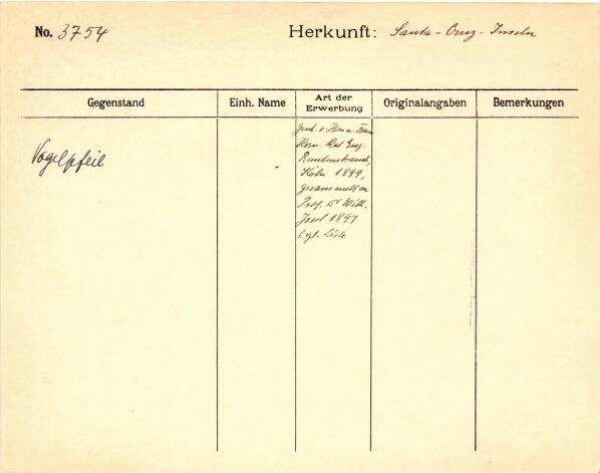 No. 3754
Herkunft: Santa-Cruz-Inseln
Gegenstand
Einh. Name
Art der Erwerbung
Originalangaben
Bemerkungen
Vogelpfeil
Kom. Rat Eug.
Rautenstrauch,
Köln 1899,
gesammelt v.
Prof. Dr Wilh.
Joest 1897
vgl. Liste